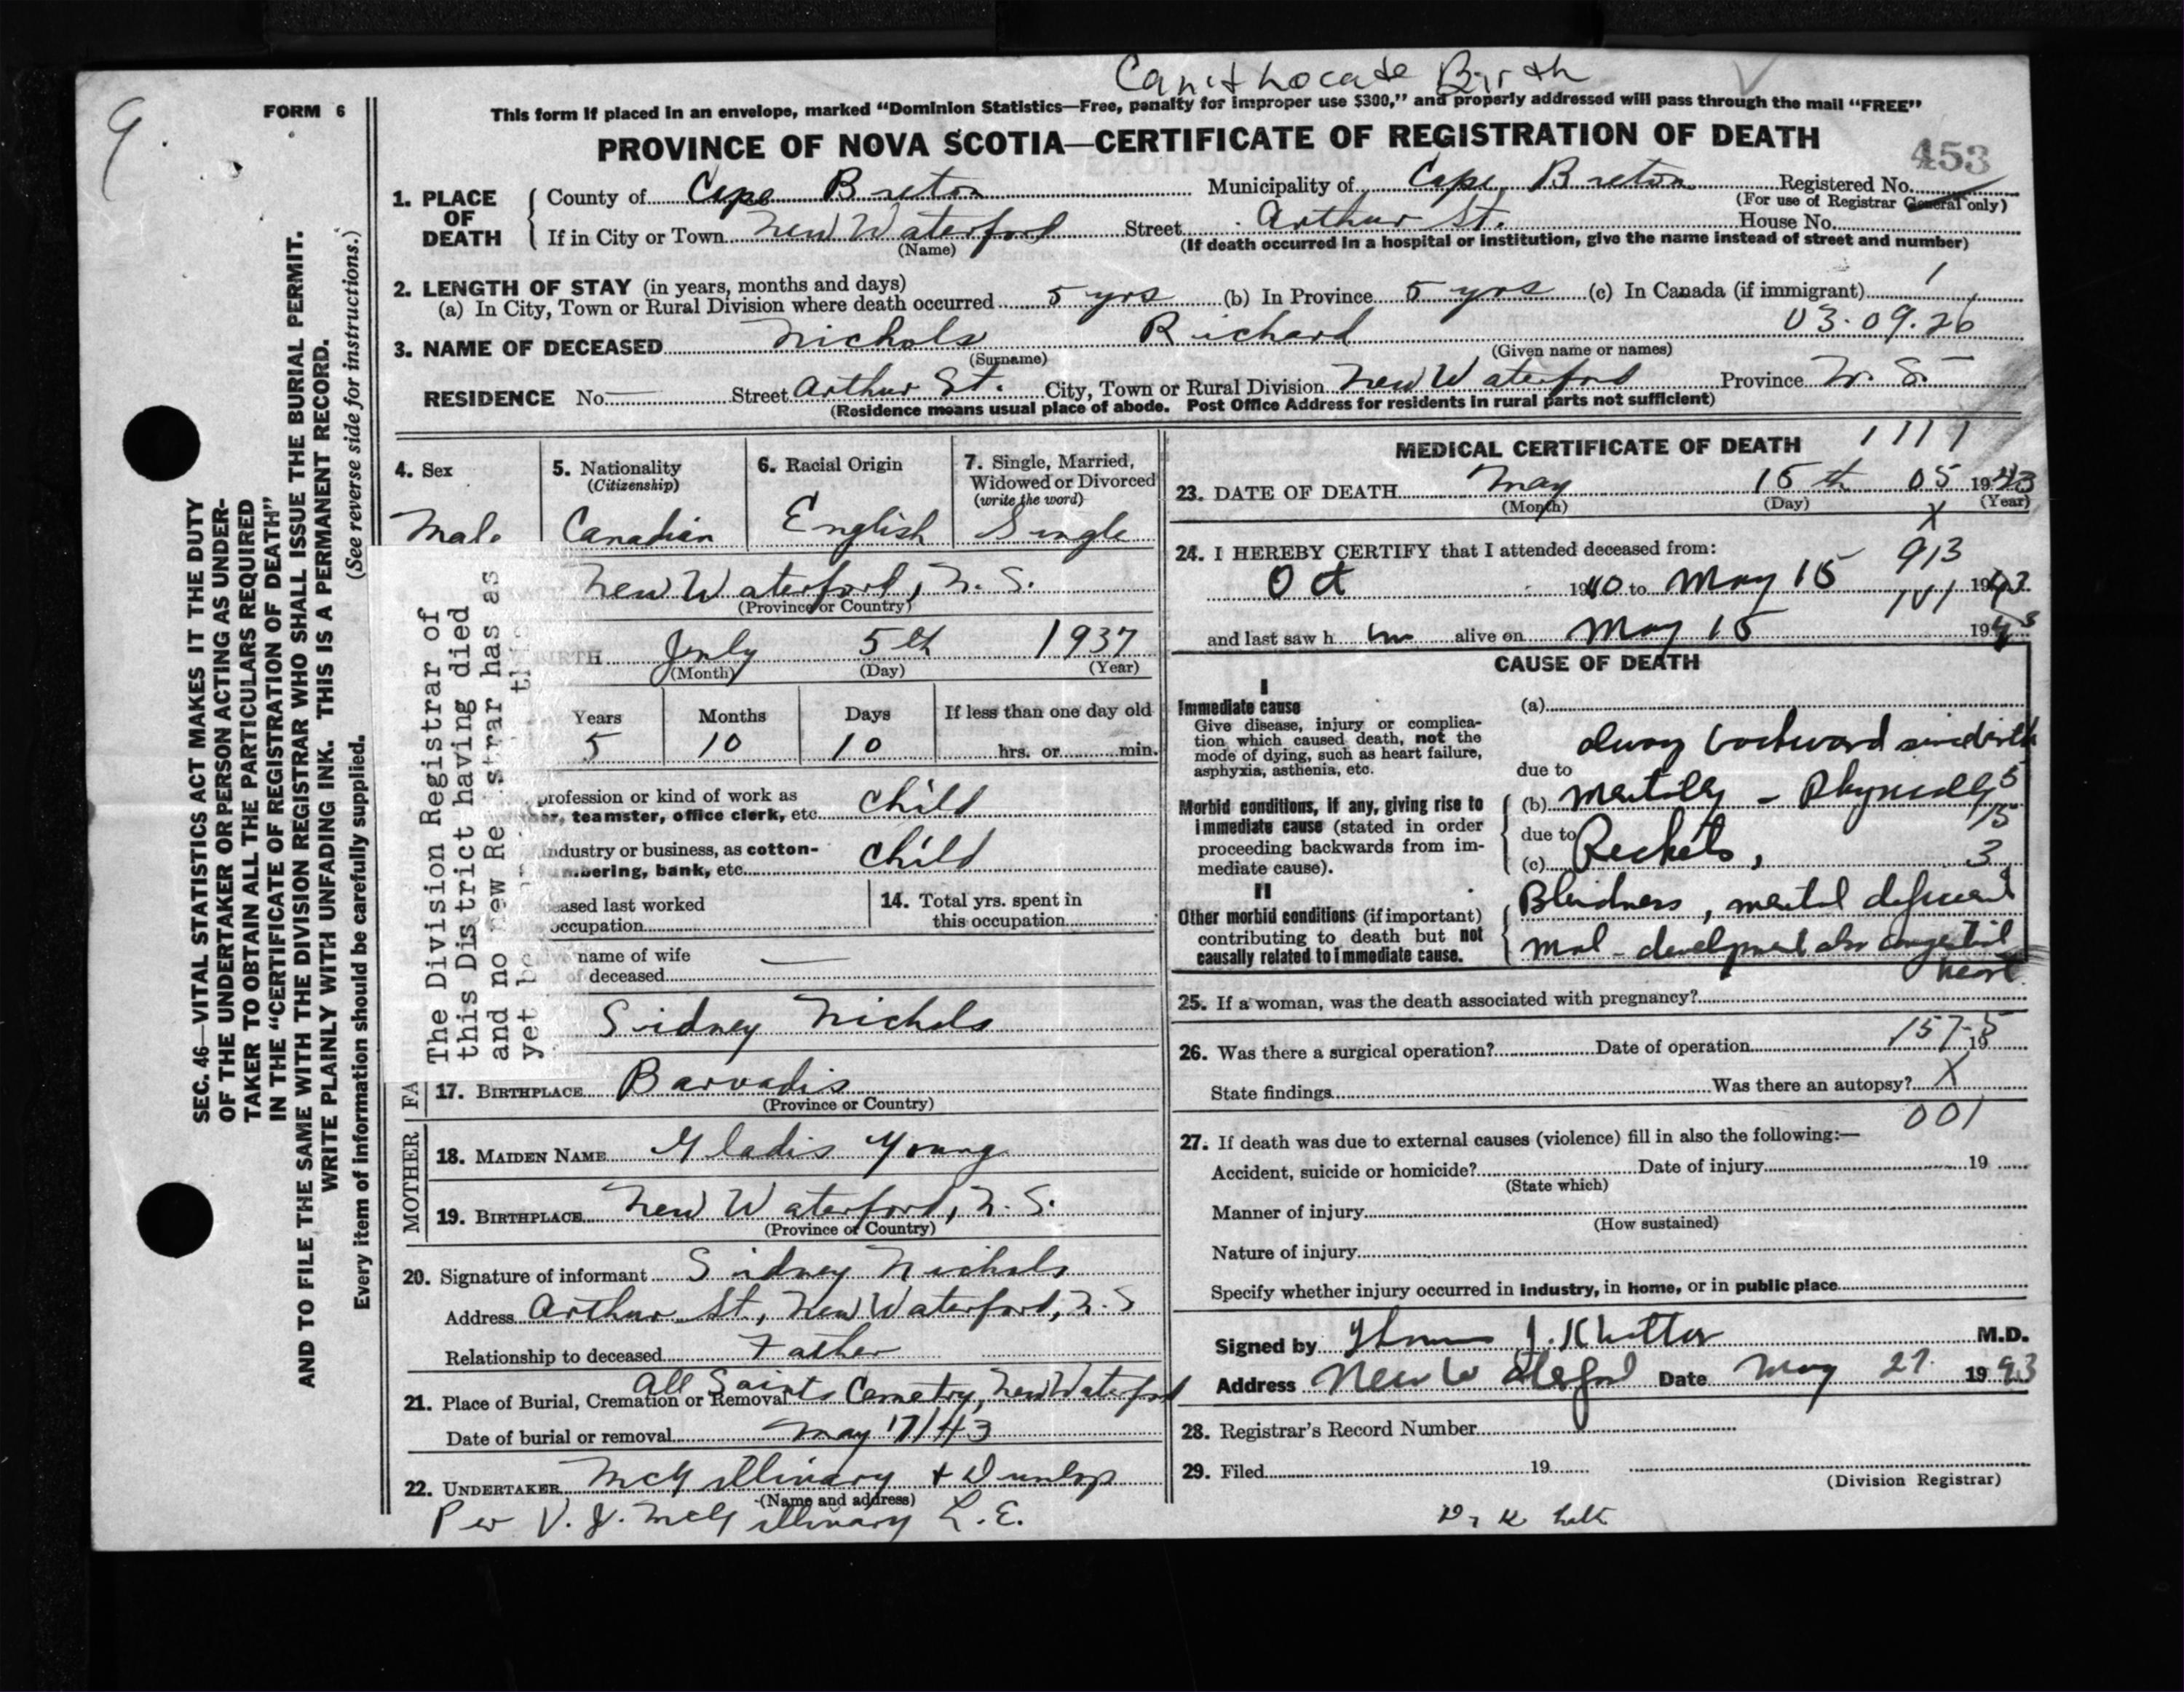 Can't Locate Birth
9.
FORM 6
This form if placed in an envelope, marked "Dominion Statistics—Free, penalty for improper use $300," and properly addressed will pass through the mail "FREE"
PROVINCE OF NOVA SCOTIA—CERTIFICATE OF REGISTRATION OF DEATH
453
1. PLACE OF DEATH
County of Cape Breton Municipality of Cape Breton Registered No.
(For use of Registrar General only)
If in City or Town New Waterford Street Arthur St. House No.
(Name) (If death occurred in a hospital or institution, give the name instead of street and number)
2. LENGTH OF STAY (in years, months and days)
(a) In City, Town or Rural Division where death occurred 5 yrs (b) In Province 5 yrs (c) In Canada (if immigrant)
3. NAME OF DECEASED Nichols Richard 03.09.26
(Surname) (Given name or names)
RESIDENCE No. Street Arthur St. City, Town or Rural Division New Waterford Province N. S.
(Residence means usual place of abode. Post Office Address for residents in rural parts not sufficient)
4. Sex
Male
5. Nationality
(Citizenship)
Canadian
6. Racial Origin
English
7. Single, Married,
Widowed or Divorced
(write the word)
Single
New Waterford, N. S.
(Province or Country)
BIRTH July 5th 1937
(Month) (Day) (Year)
Years Months Days If less than one day old
5 10 10 hrs. or min.
profession or kind of work as
teamster, office clerk, etc. Child
industry or business, as cotton-
bering, bank, etc. Child
eased last worked
occupation
14. Total yrs. spent in
this occupation
name of wife
of deceased —
Sidney Nichols
17. BIRTHPLACE Barvadis
(Province or Country)
MOTHER
18. MAIDEN NAME Gladis Young
19. BIRTHPLACE New Waterford, N. S.
(Province or Country)
20. Signature of informant Sidney Nichols
Address Arthur St., New Waterford, N. S
Relationship to deceased Father
21. Place of Burial, Cremation or Removal All Saints Cemetry, New Waterford
Date of burial or removal May 17/43
22. UNDERTAKER McGillivary + Dunlop
(Name and address)
Per V. J. McGillivary L. E.
The Division Registrar of
this District having died
and no new Registrar has as
yet be
MEDICAL CERTIFICATE OF DEATH
1111
23. DATE OF DEATH May 15th 05 1943
(Month) (Day) (Year)
X
24. I HEREBY CERTIFY that I attended deceased from:
913
Oct 1940 to May 15 1943
and last saw h im alive on May 15 1943
CAUSE OF DEATH
I
Immediate cause
Give disease, injury or complica-
tion which caused death, not the
mode of dying, such as heart failure,
asphyxia, asthenia, etc.
(a)
always backward since birth
due to
Morbid conditions, if any, giving rise to
immediate cause (stated in order
proceeding backwards from im-
mediate cause).
(b) Mentally - Physically
due to
(c) Rickets,
II
Other morbid conditions (if important)
contributing to death but not
causally related to immediate cause.
Blindness, mental deficient
mal-development also congenital
heart
25. If a woman, was the death associated with pregnancy?
157-5
26. Was there a surgical operation? Date of operation 19
State findings Was there an autopsy? X
001
27. If death was due to external causes (violence) fill in also the following:—
Accident, suicide or homicide? Date of injury 19
(State which)
Manner of injury
(How sustained)
Nature of injury
Specify whether injury occurred in Industry, in home, or in public place
Signed by M.D.
Address New Waterford Date May 27 1943
28. Registrar's Record Number
29. Filed 19
(Division Registrar)
SEC. 46—VITAL STATISTICS ACT MAKES IT THE DUTY
OF THE UNDERTAKER OR PERSON ACTING AS UNDER-
TAKER TO OBTAIN ALL THE PARTICULARS REQUIRED
IN THE "CERTIFICATE OF REGISTRATION OF DEATH"
AND TO FILE THE SAME WITH THE DIVISION REGISTRAR WHO SHALL ISSUE THE BURIAL PERMIT.
WRITE PLAINLY WITH UNFADING INK. THIS IS A PERMANENT RECORD.
Every item of information should be carefully supplied. (See reverse side for instructions.)